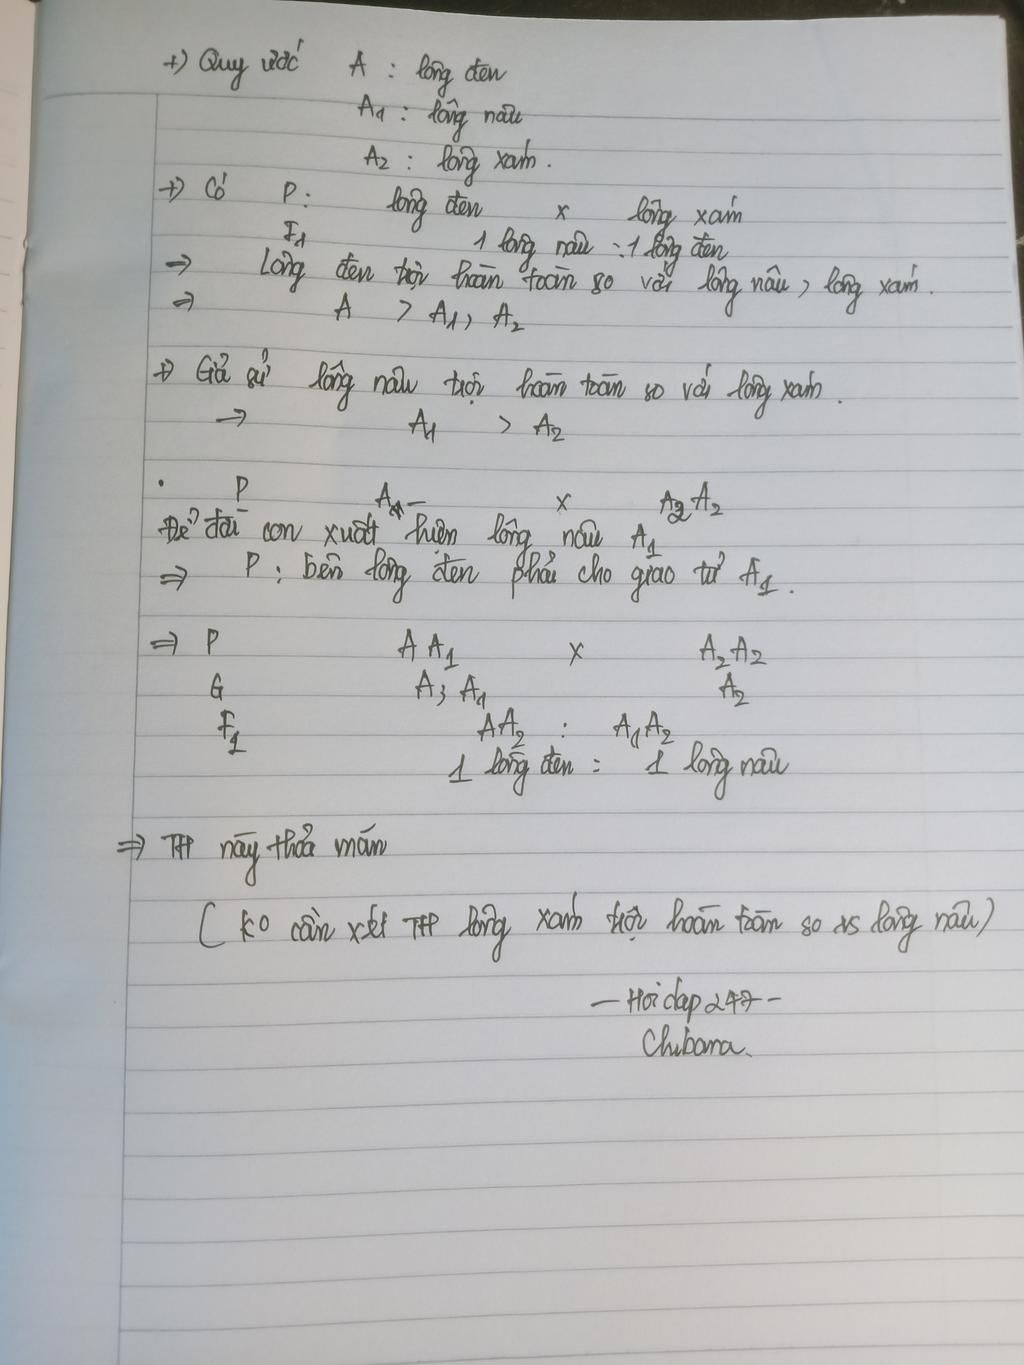 +) Quy ước A : lông đen
A1 : lông nâu
A2 : lông xám.
+) Có P: lông đen x lông xám
F1 1 lông nâu : 1 lông đen
→ Lông đen trội hoàn toàn so với lông nâu, lông xám.
⇒ A > A1, A2
+) Giả sử lông nâu trội hoàn toàn so với lông xám.
→ A1 > A2
. P A_ x A2A2
Để đời con xuất hiện lông nâu A1
⇒ P: bên lông đen phải cho giao tử A1.
⇒ P AA1 x A2A2
G A; A1 A2
F1 AA2 : A1A2
1 lông đen : 1 lông nâu
⇒ TH này thỏa mãn
( ko cần xét TH lông xám trội hoàn toàn so vs lông nâu)
– Hoidap247 –
Chibana.